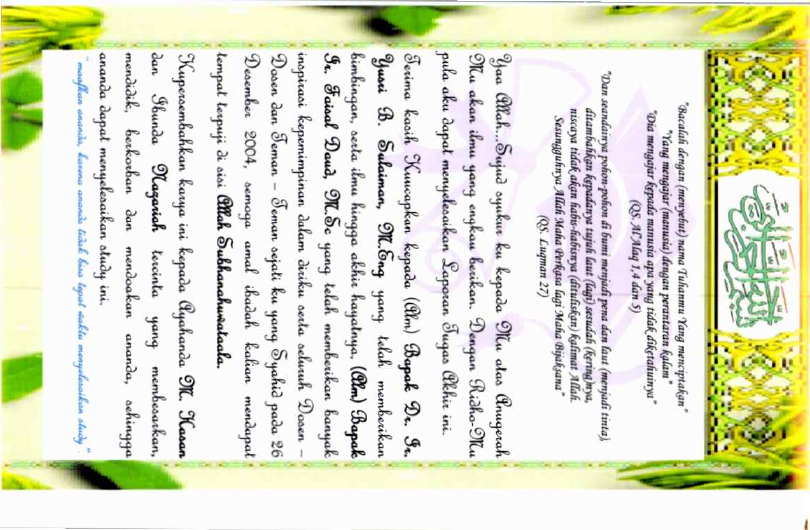 "Bacalah dengan (menyebut) nama Tuhanmu Yang menciptakan"
"Yang mengajar (manusia) dengan perantaran kalam"
"Dia mengajar kepada manusia apa yang tidak diketahuinya"
(QS. Al'Alaq 1,4 dan 5)
"Dan seandainya pohon-pohon di bumi menjadi pena dan laut (menjadi tinta),
ditambahkan kepadanya tujuh laut (lagi) sesudah (kering)nya,
niscaya tidak akan habis-habisnya (dituliskan) kalimat Allah.
Sesungguhnya Allah Maha Perkasa lagi Maha Bijaksana"
(QS. Luqman 27)
Yaa Allah...Sujud syukur ku kepada Mu atas Anugerah
Mu akan ilmu yang engkau berikan. Dengan Ridho-Mu
pula aku dapat menyelesaikan Laporan Tugas Akhir ini.
Terima kasih Kuucapkan kepada (Alm) Bapak Dr. Ir.
Yusri B. Sulaiman, M.Eng yang telah memberikan
bimbingan, serta ilmu hingga akhir hayatnya, (Alm) Bapak
Ir. Faisal Daud, M.Sc yang telah memberikan banyak
inspirasi kepemimpinan dalam diriku serta seluruh Dosen –
Dosen dan Teman – Teman sejati ku yang Syahid pada 26
Desember 2004, semoga amal ibadah kalian mendapat
tempat terpuji di sisi Allah Subhanahuwataala.
Kupersembahkan karya ini kepada Ayahanda M. Hasan
dan Ibunda Nazariah tercinta yang membesarkan,
mendidik, berkorban dan mendoakan ananda, sehingga
ananda dapat menyelesaikan study ini.
"maafkan ananda, karena ananda tidak bisa tepat waktu menyelesaikan study".